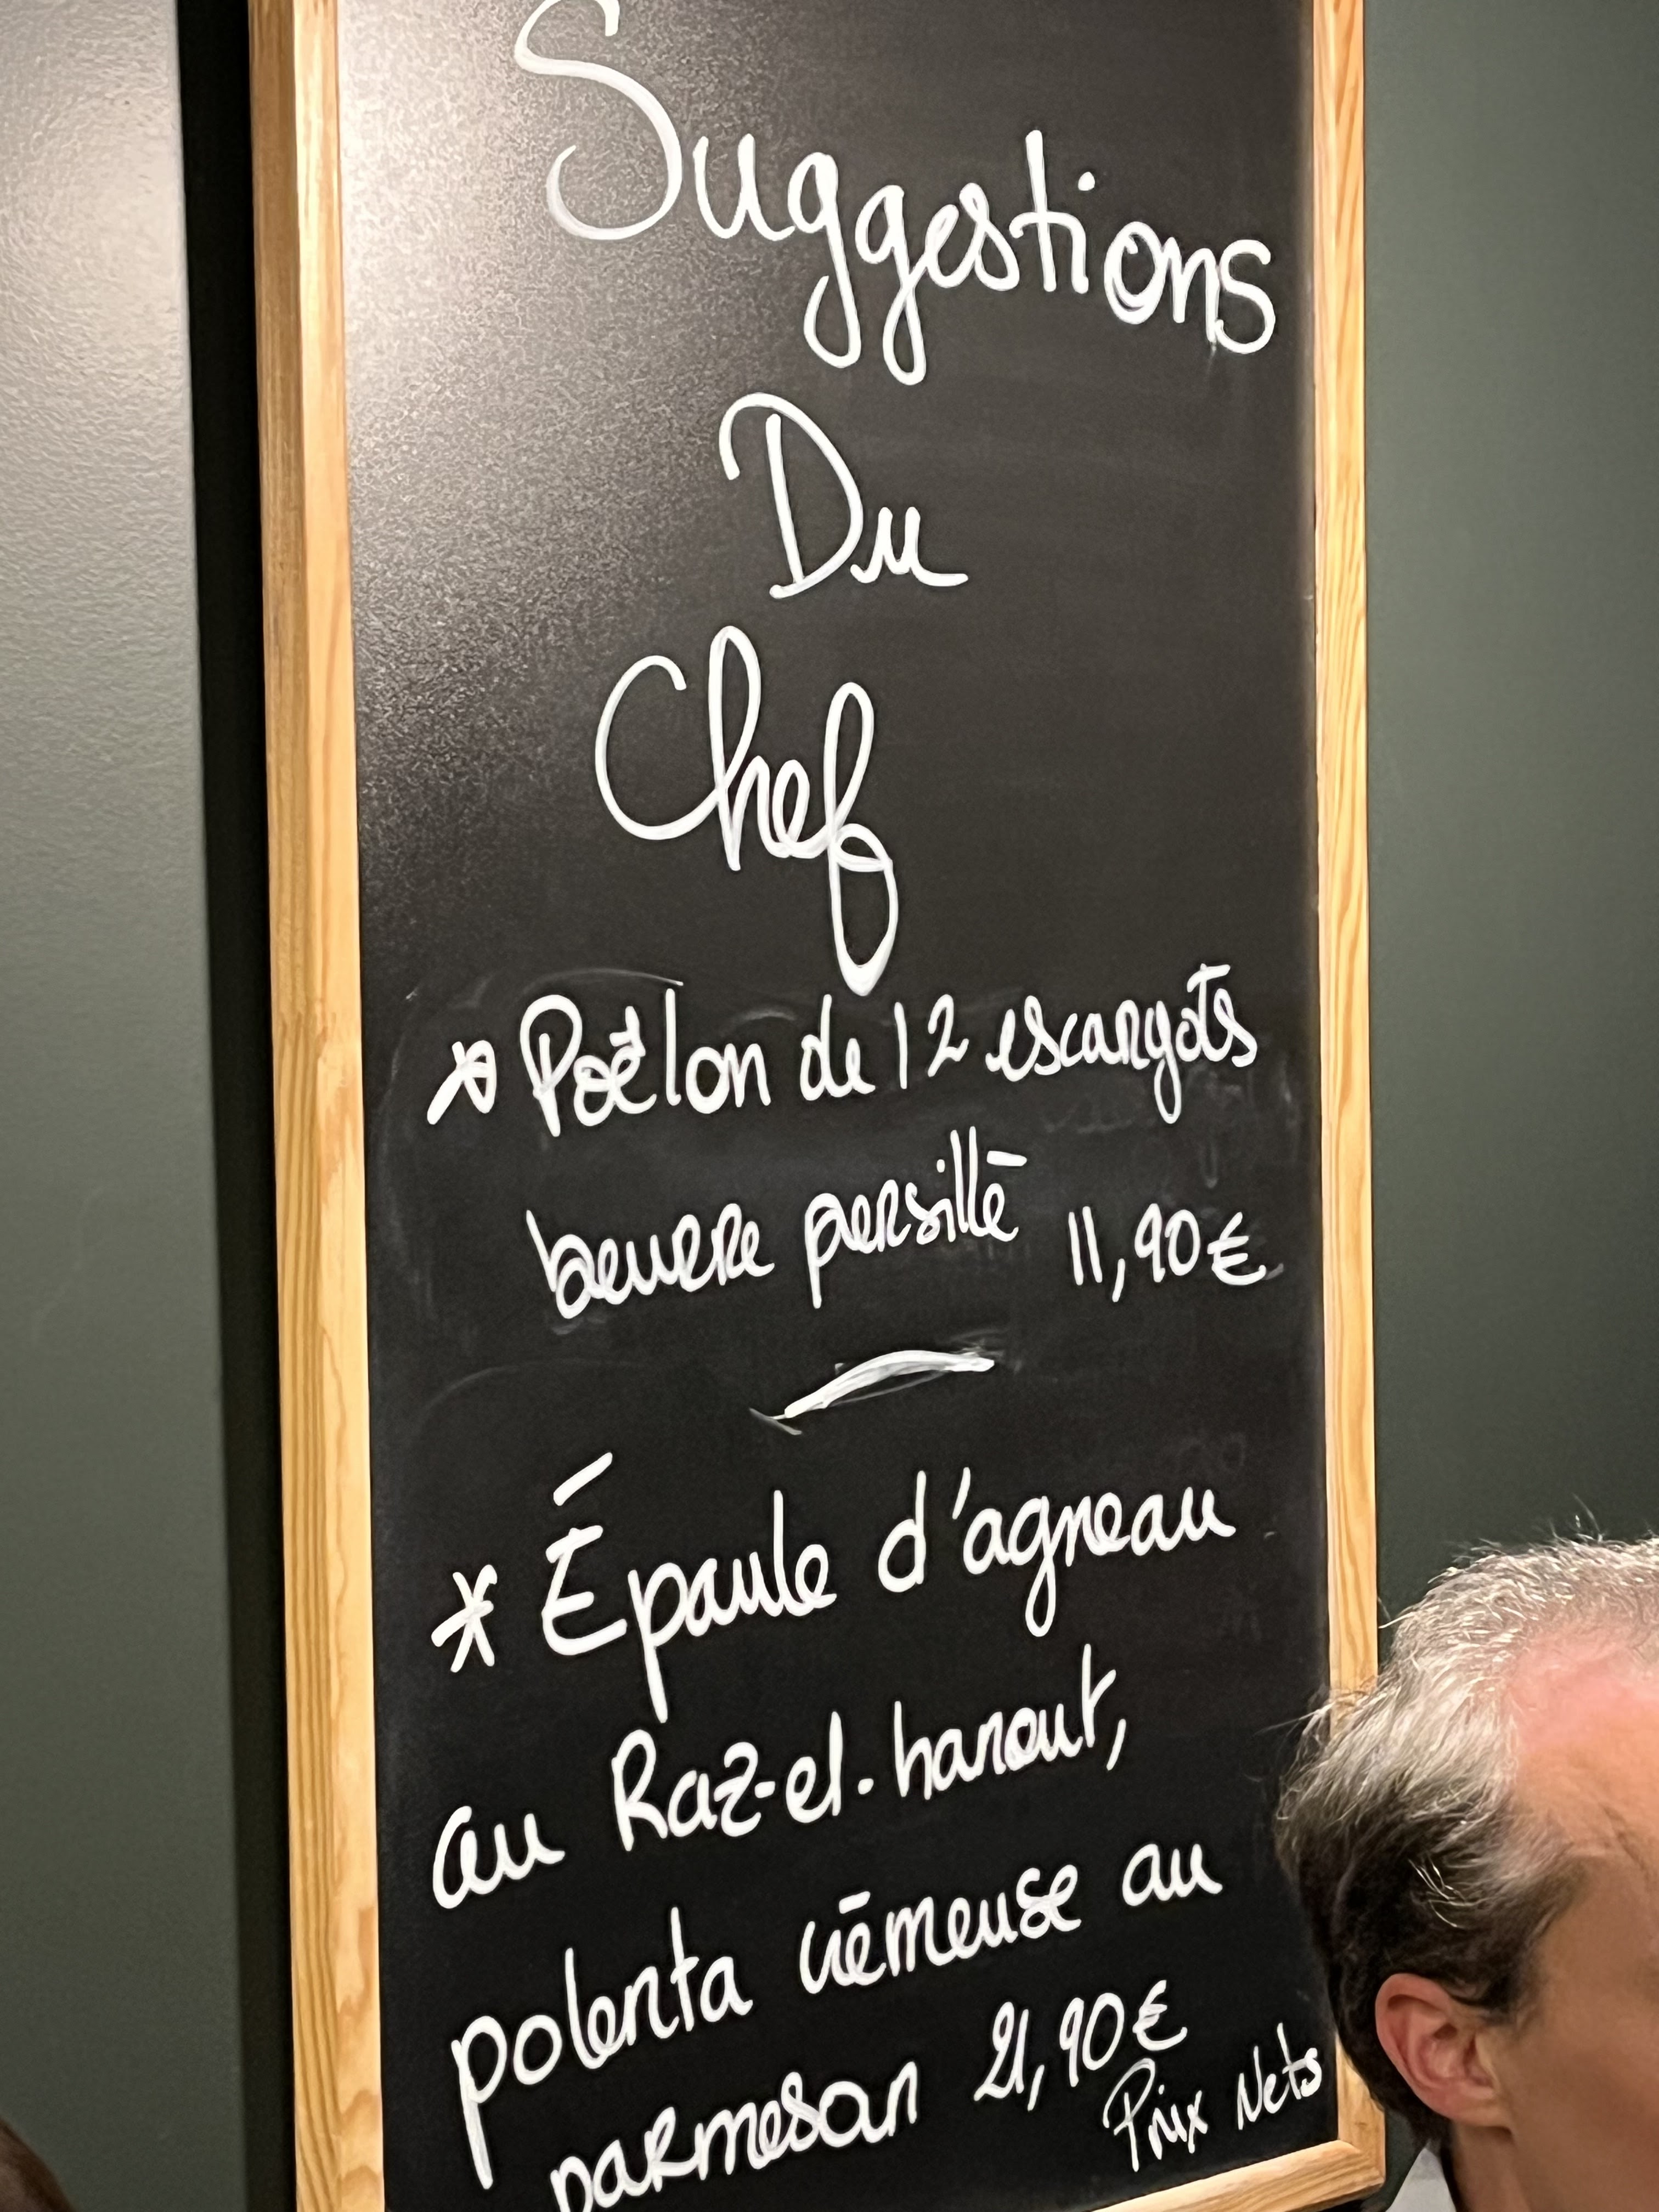 Suggestions
Du
Chef
* Poëlon de 12 escargots
beurre persillé 11,90€
* Épaule d'agneau
au Raz-el-hanout,
polenta crémeuse au
parmesan 21,90€
Prix Nets